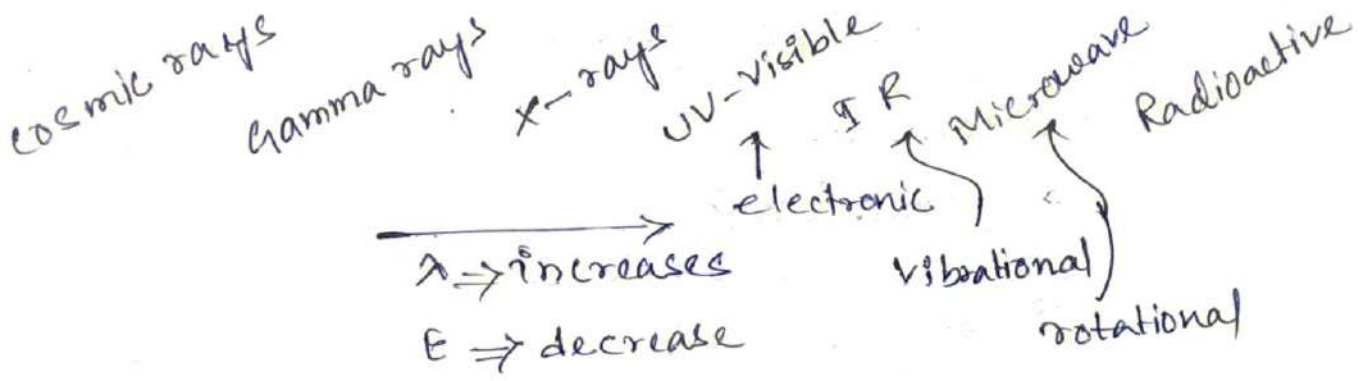 cosmic rays Gamma rays X-rays UV-Visible IR Microwave Radioactive
electronic
λ ⇒ increases vibrational
E ⇒ decrease rotational